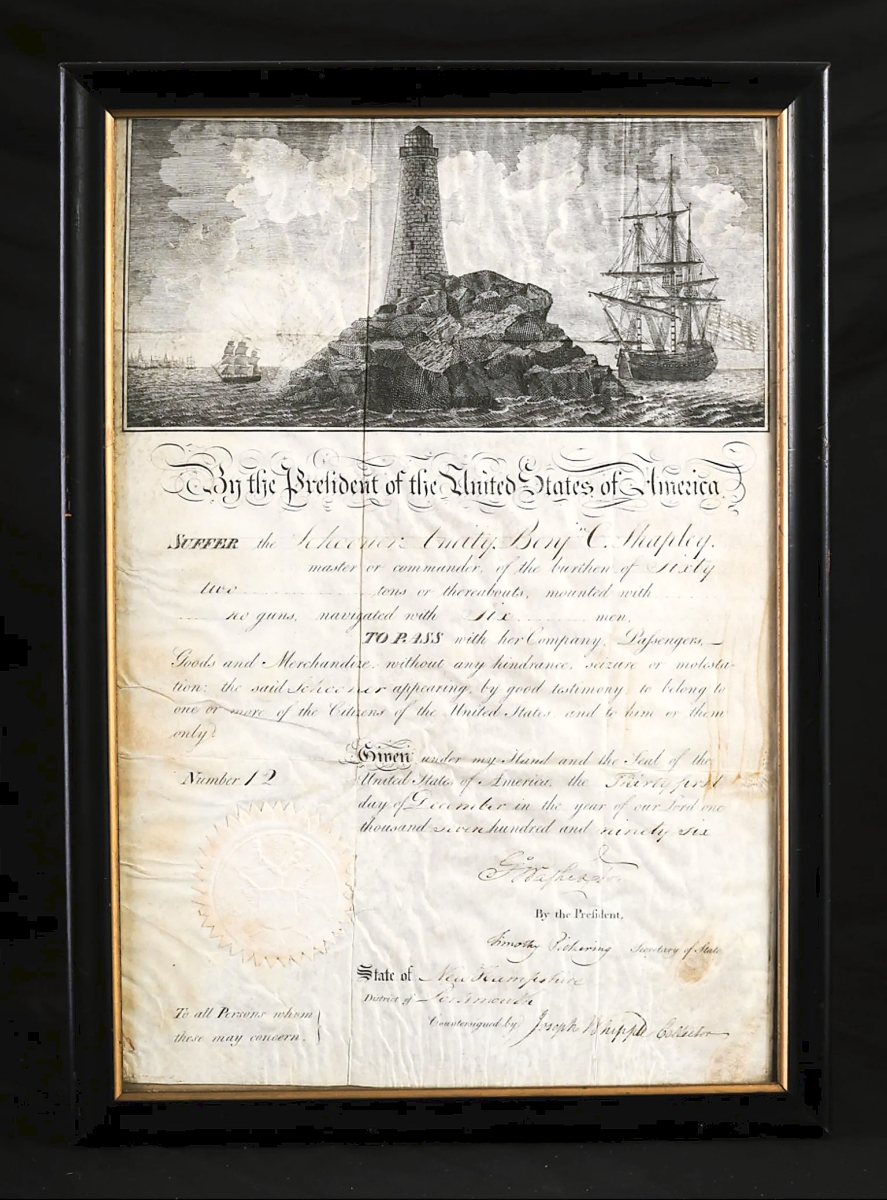 By the President of the United States of America.
SUFFER the Schooner Amity, Benj.n C. Shapley,
master or commander, of the burthen of Sixty
two tons or thereabouts, mounted with
no guns, navigated with six men,
TO PASS with her Company, Passengers,
Goods and Merchandize, without any hindrance, seizure or molesta-
tion: the said Schooner appearing, by good testimony, to belong to
one or more of the Citizens of the United States, and to him or them
only.
Given under my Hand and the Seal of the
Number 12
United States of America, the Thirty first
day of December in the year of our Lord one
thousand seven hundred and ninety six
Go Washington
By the President,
Timothy Pickering Secretary of State
State of New Hampshire
District of Portsmouth
To all Persons whom
Countersigned by Joseph Whipple Collector
these may concern.